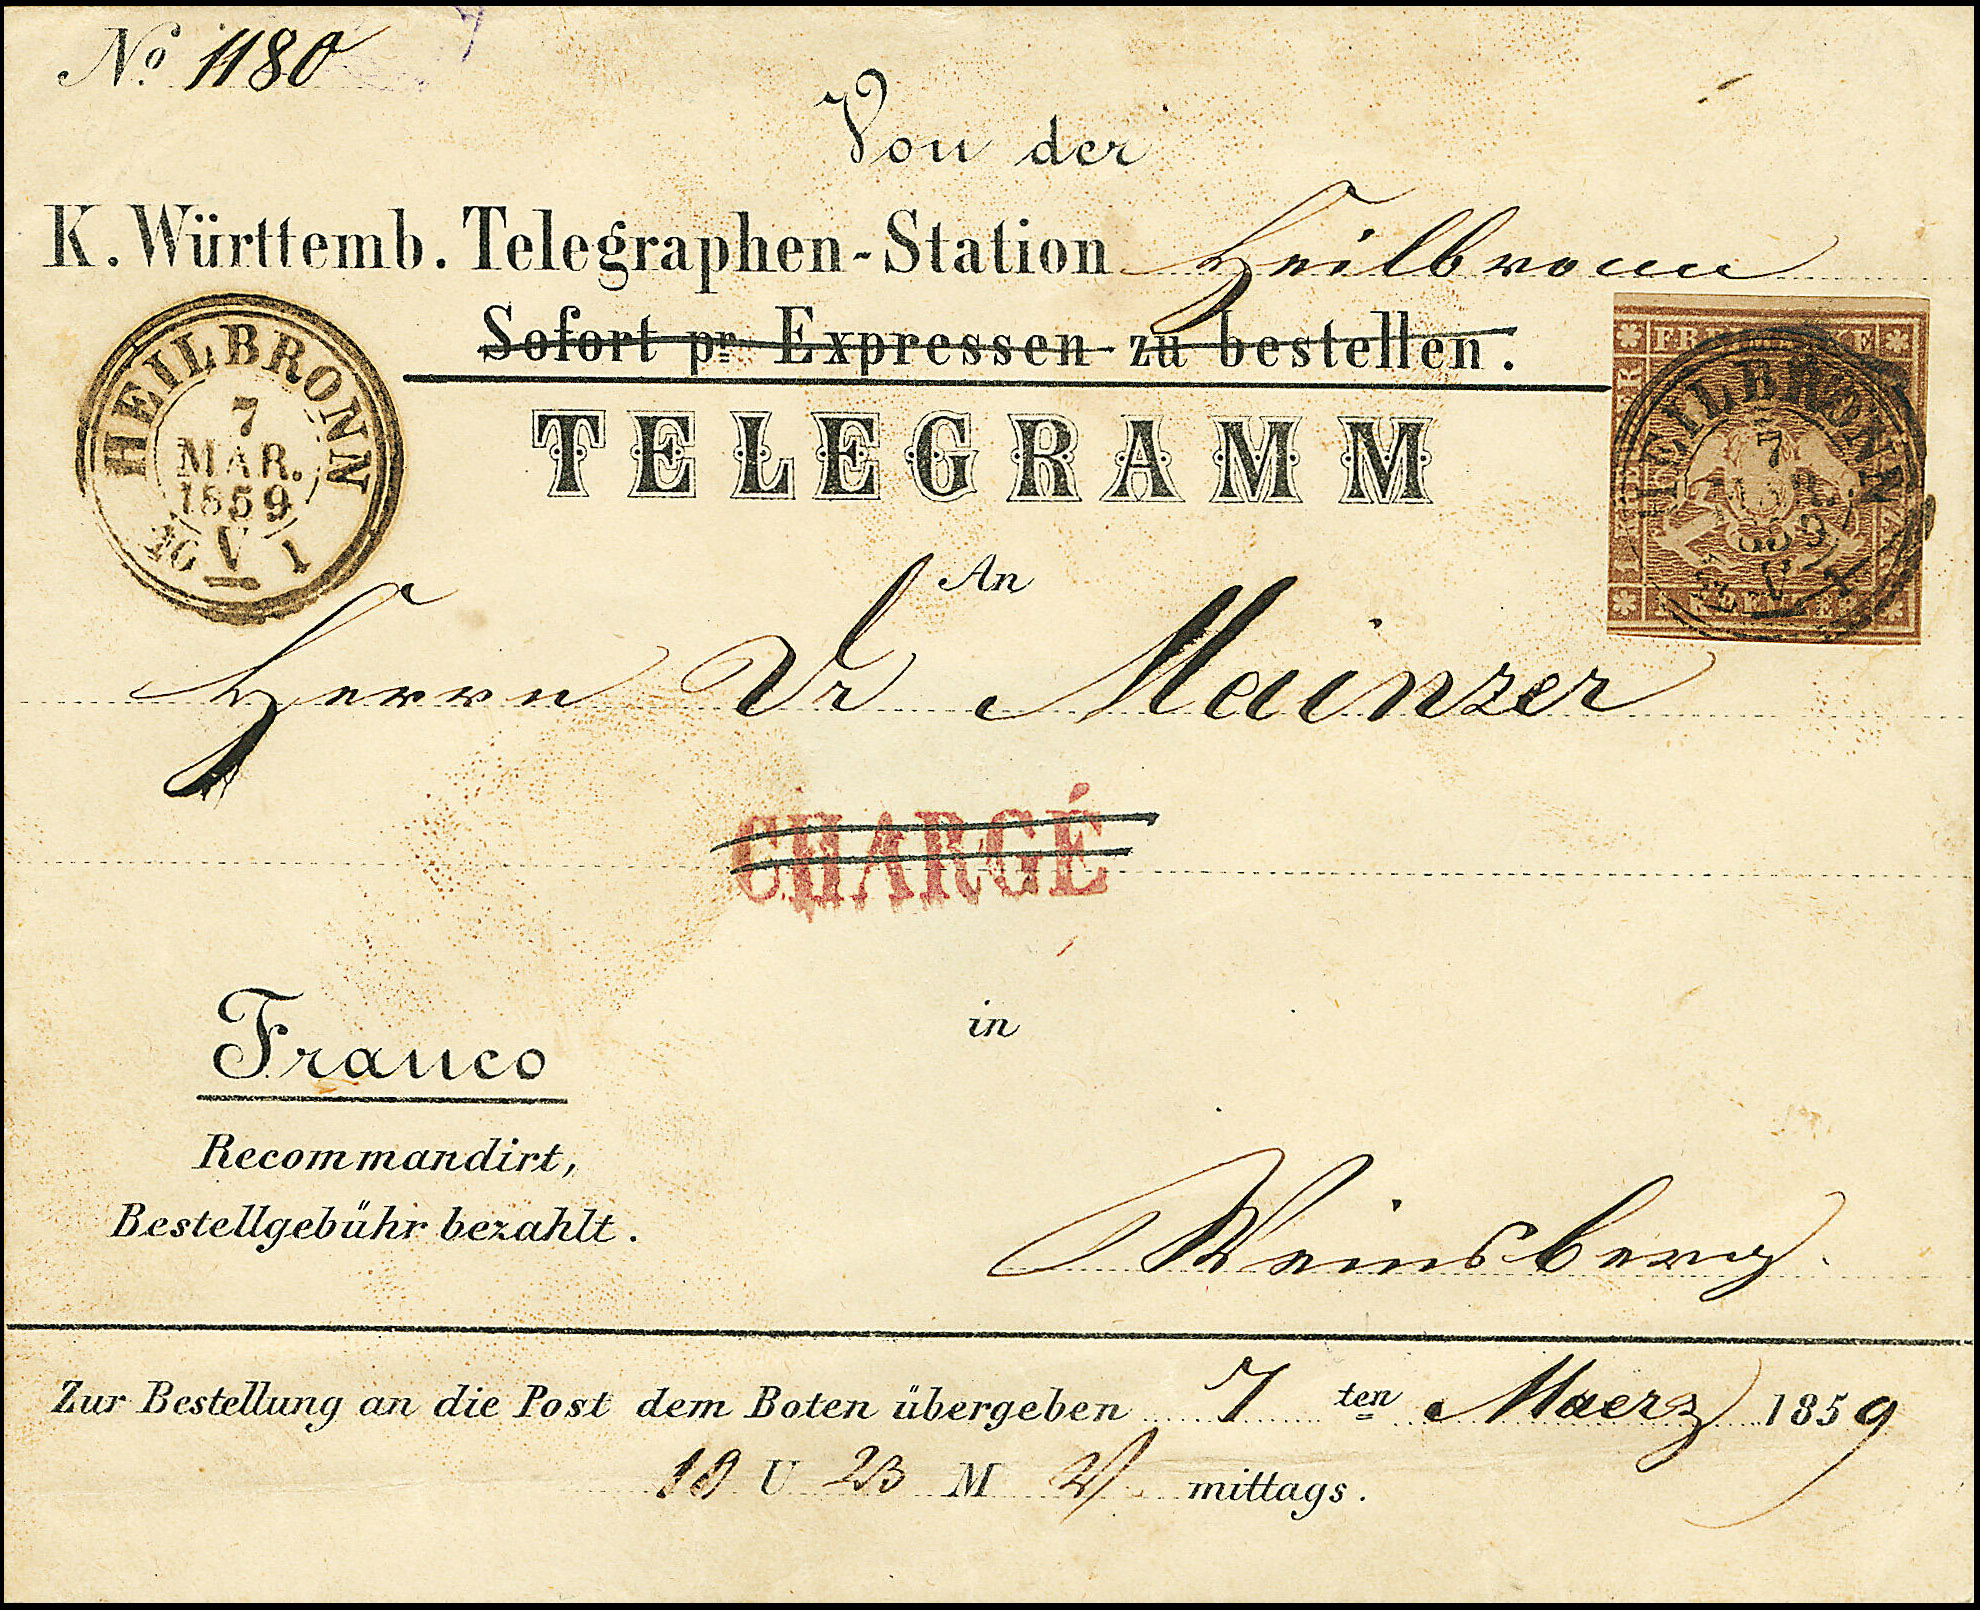 No. 1180
Von der
K. Württemb. Telegraphen-Station Heilbronn
Sofort pr. Expressen zu bestellen.
HEILBRONN
7
MÄR.
1859
10 V 1
FREIMARKE
HEILBRONN
7
TELEGRAMM
An
Herrn Dr Mainzer
CHARGÉ
in
Franco
Recommandirt,
Bestellgebühr bezahlt.
Weinsberg.
Zur Bestellung an die Post dem Boten übergeben 7 ten Maerz 1859
10 U 23 M V mittags.